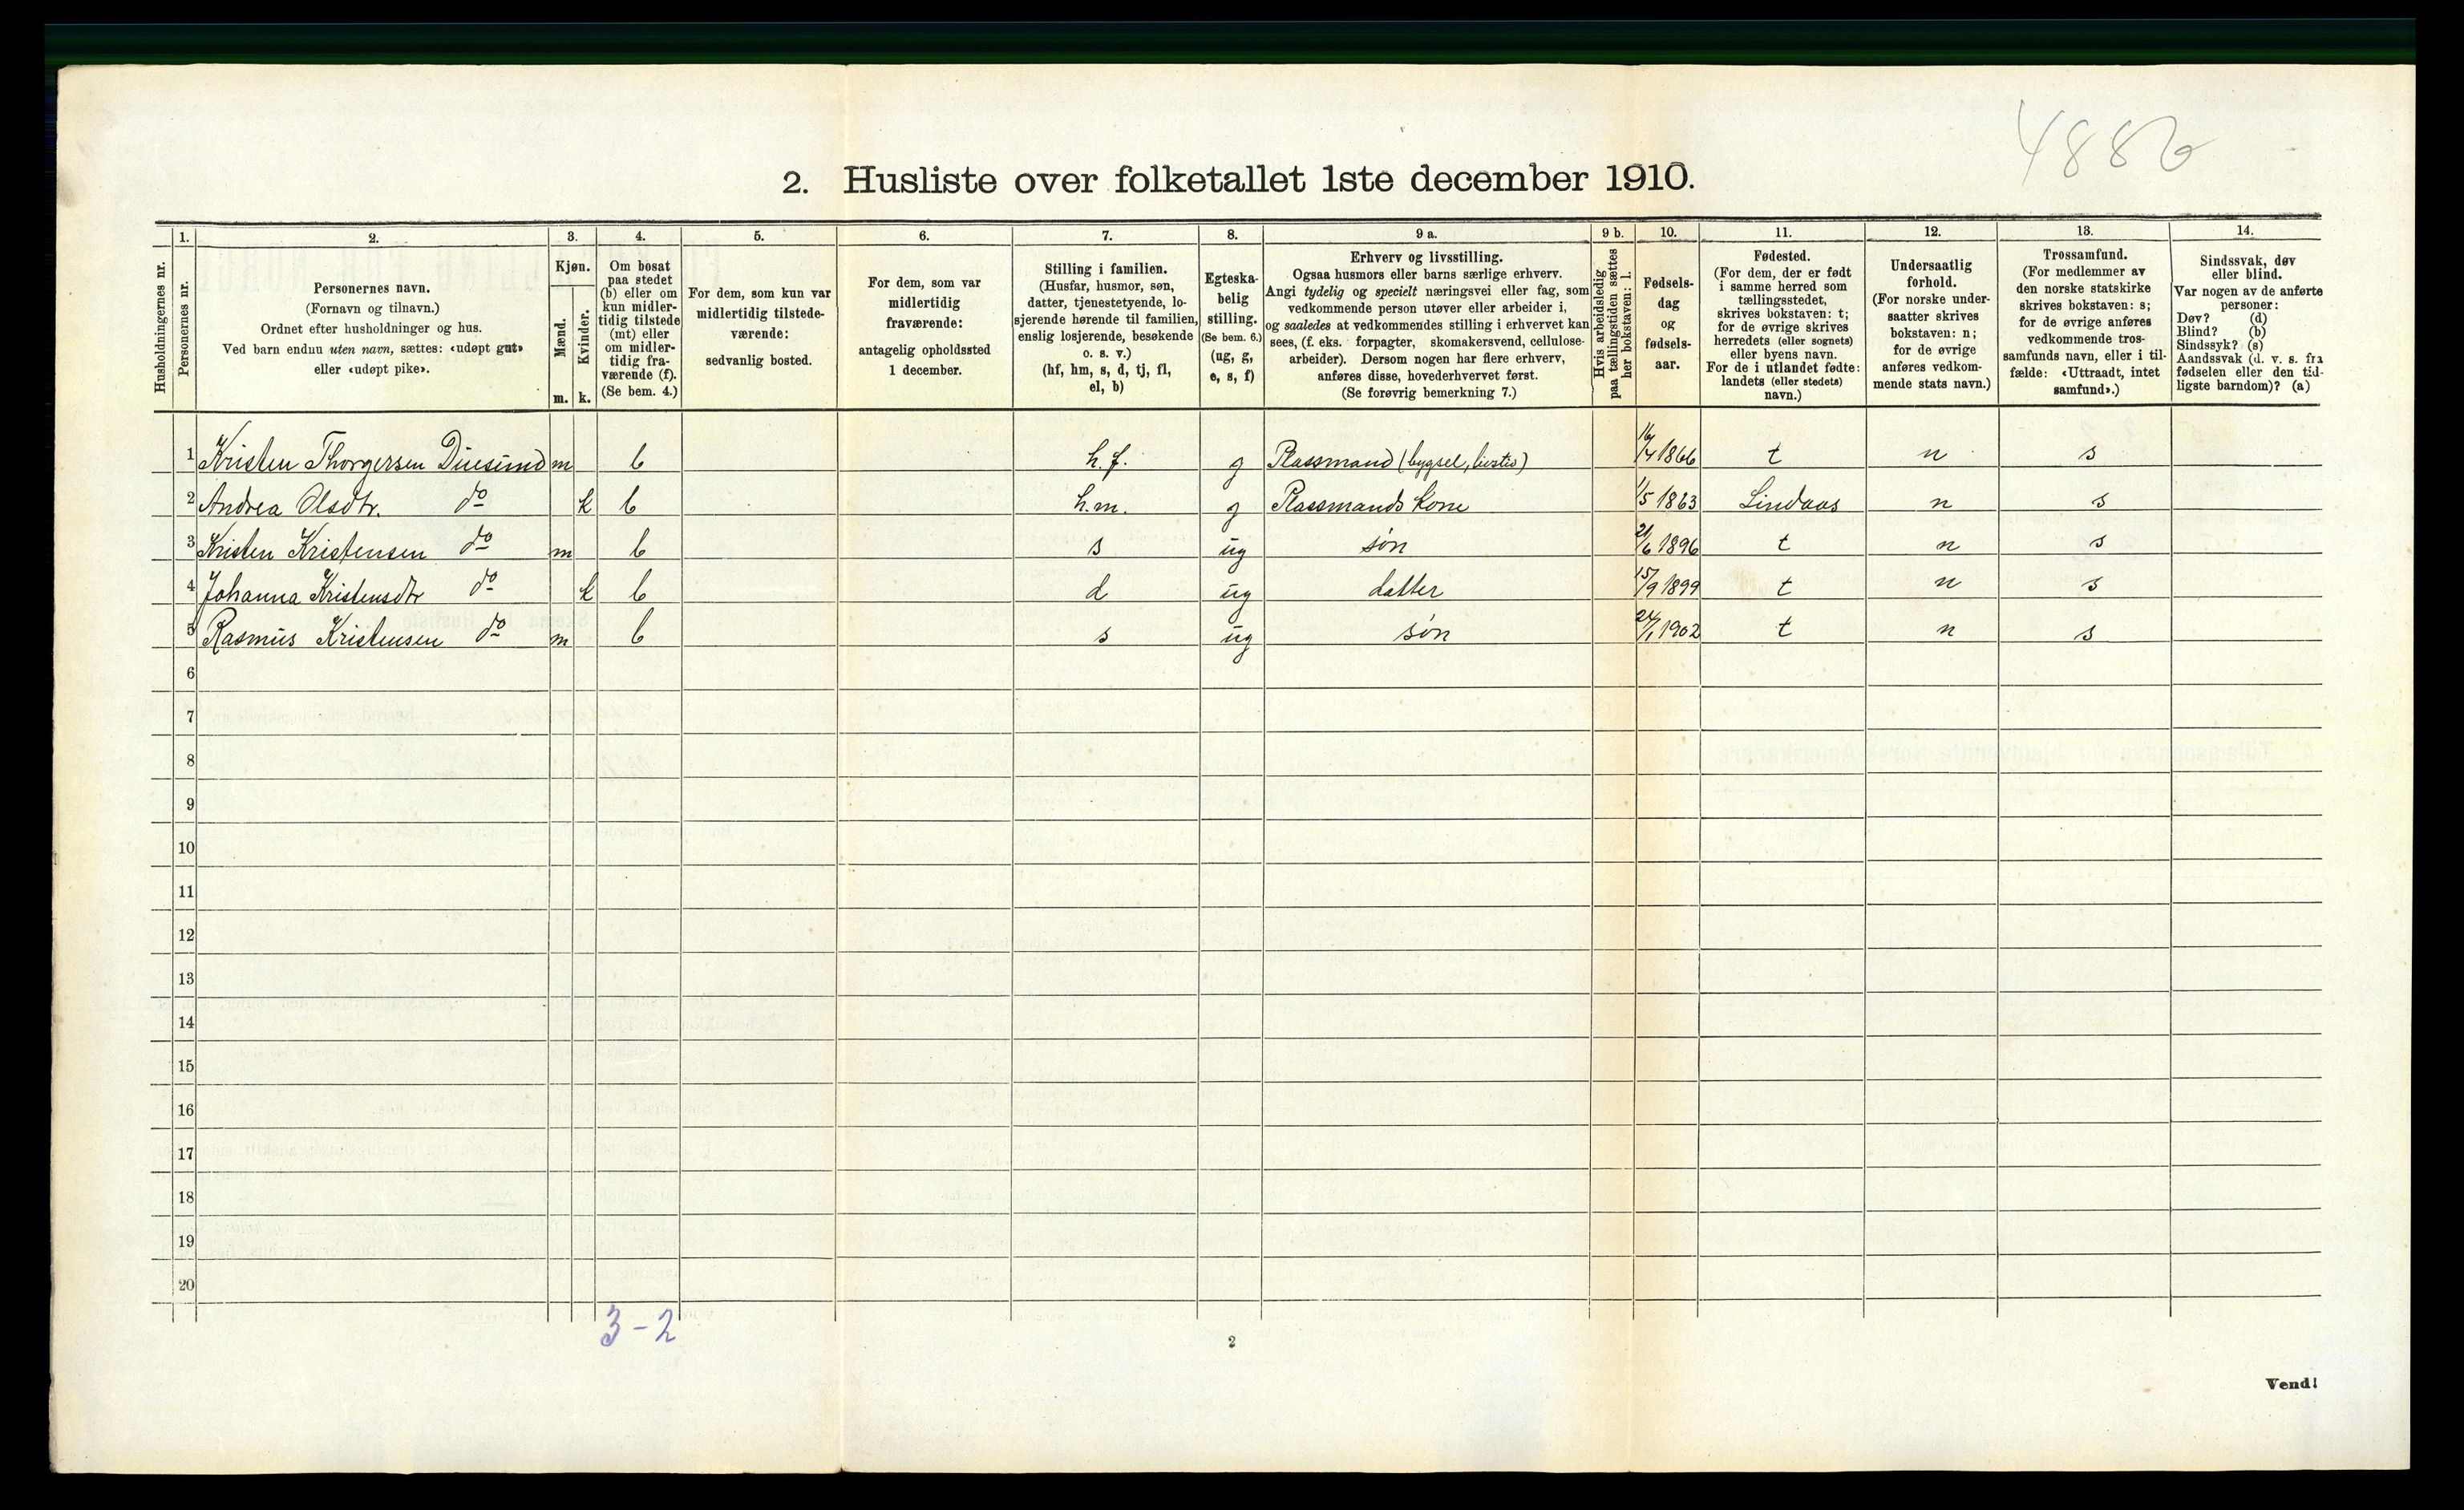 4886
2. Husliste over folketallet 1ste december 1910.
Husholdningernes nr.
1.
Personernes nr.
2.
Personernes navn.
(Fornavn og tilnavn.)
Ordnet efter husholdninger og hus.
Ved barn endnu uten navn, sættes: «udøpt gut»
eller «udøpt pike».
3.
Kjøn.
Mænd.
Kvinder.
m. k.
4.
Om bosat
paa stedet
(b) eller om
kun midler-
tidig tilstede
(mt) eller
om midler-
tidig fra-
værende (f).
(Se bem. 4.)
5.
For dem, som kun var
midlertidig tilstede-
værende:
sedvanlig bosted.
6.
For dem, som var
midlertidig
fraværende:
antagelig opholdssted
1 december.
7.
Stilling i familien.
(Husfar, husmor, søn,
datter, tjenestetyende, lo-
sjerende hørende til familien,
enslig losjerende, besøkende
o. s. v.)
(hf, hm, s, d, tj, fl,
el, b)
8.
Egteska-
belig
stilling.
(Se bem. 6.)
(ug, g,
e, s, f)
9 a.
Erhverv og livsstilling.
Ogsaa husmors eller barns særlige erhverv.
Angi tydelig og specielt næringsvei eller fag, som
vedkommende person utøver eller arbeider i,
og saaledes at vedkommendes stilling i erhvervet kan
sees, (f. eks. forpagter, skomakersvend, cellulose-
arbeider). Dersom nogen har flere erhverv,
anføres disse, hovederhvervet først.
(Se forøvrig bemerkning 7.)
9 b.
Hvis arbeidsledig
paa tællingstiden sættes
her bokstaven: l.
10.
Fødsels-
dag
og
fødsels-
aar.
11.
Fødested.
(For dem, der er født
i samme herred som
tællingsstedet,
skrives bokstaven: t;
for de øvrige skrives
herredets (eller sognets)
eller byens navn.
For de i utlandet fødte:
landets (eller stedets)
navn.)
12.
Undersaatlig
forhold.
(For norske under-
saatter skrives
bokstaven: n;
for de øvrige
anføres vedkom-
mende stats navn.)
13.
Trossamfund.
(For medlemmer av
den norske statskirke
skrives bokstaven: s;
for de øvrige anføres
vedkommende tros-
samfunds navn, eller i til-
fælde: «Uttraadt, intet
samfund».)
14.
Sindssvak, døv
eller blind.
Var nogen av de anførte
personer:
Døv? (d)
Blind? (b)
Sindssyk? (s)
Aandssvak (d. v. s. fra
fødselen eller den tid-
ligste barndom)? (a)
1 Kristen Thorgersen Duesund m b h.f. g Plassmand (bygsel, livstid) 16/4 1866 t n s
2 Andrea Olsdtr. do k b h.m. g Plassmands kone 1/5 1863 Lindaas n s
3 Kristen Kristensen do m b s ug søn 21/6 1896 t n s
4 Johanna Kristensdtr do k b d ug datter 15/9 1899 t n s
5 Rasmus Kristensen do m b s ug søn 24/1 1902 t n s
6
7
8
9
10
11
12
13
14
15
16
17
18
19
20
3-2
2
Vend!